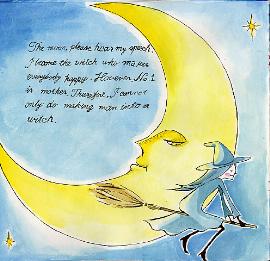 The moon, please hear my speech.
I became the witch who makes
everybody happy. However No.1
is mother. Therefore, I cannot
only do making man into a
witch.